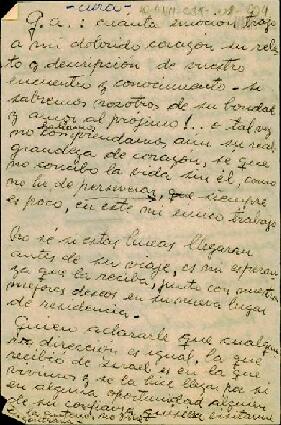 -cura-
G. a.: cuanta emoción trajo
a mi dolorido corazón, su rela-
to y descripción de nuestro
encuentro y conocimiento - si
sabremos nosotros de su bondad
y amor al prójimo!.. o tal vez
no comprendamos aun su real
grandeza de corazón, se que
no concibo la vida sin él, como
no he de perseverar, que siempre
es poco, en este mi único trabajo
No sé si estas líneas llegaran
antes de su viaje, es mi esperan-
za que la reciba, junto con nuestros
mejores deseos en su nuevo lugar
de residencia.-
Quiero aclararle que cualquie-
ra dirección es igual, la que
recibió de Israel es en la que
vivimos y se la hice llegar por si
en alguna oportunidad alguien
de su confianza, quisiera visitarme